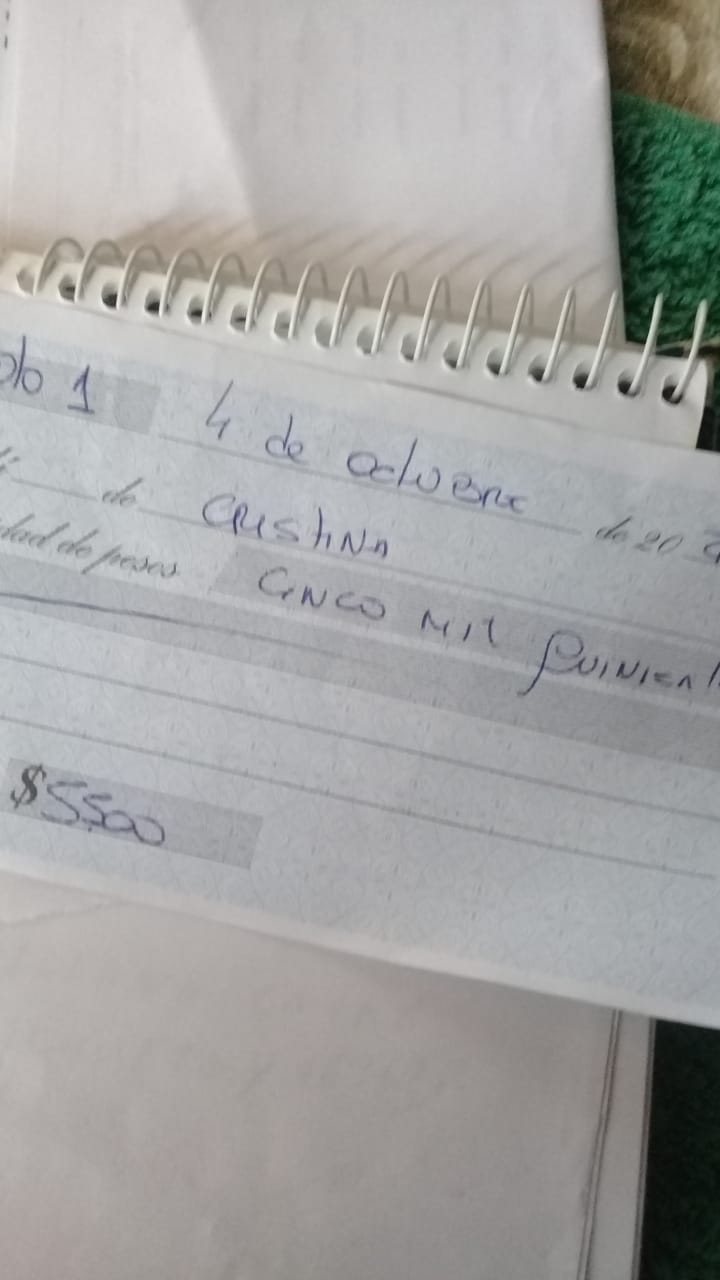 1 4 de octubre de 20
de Cristina
de pesos Cinco Mil Quinient
$5500